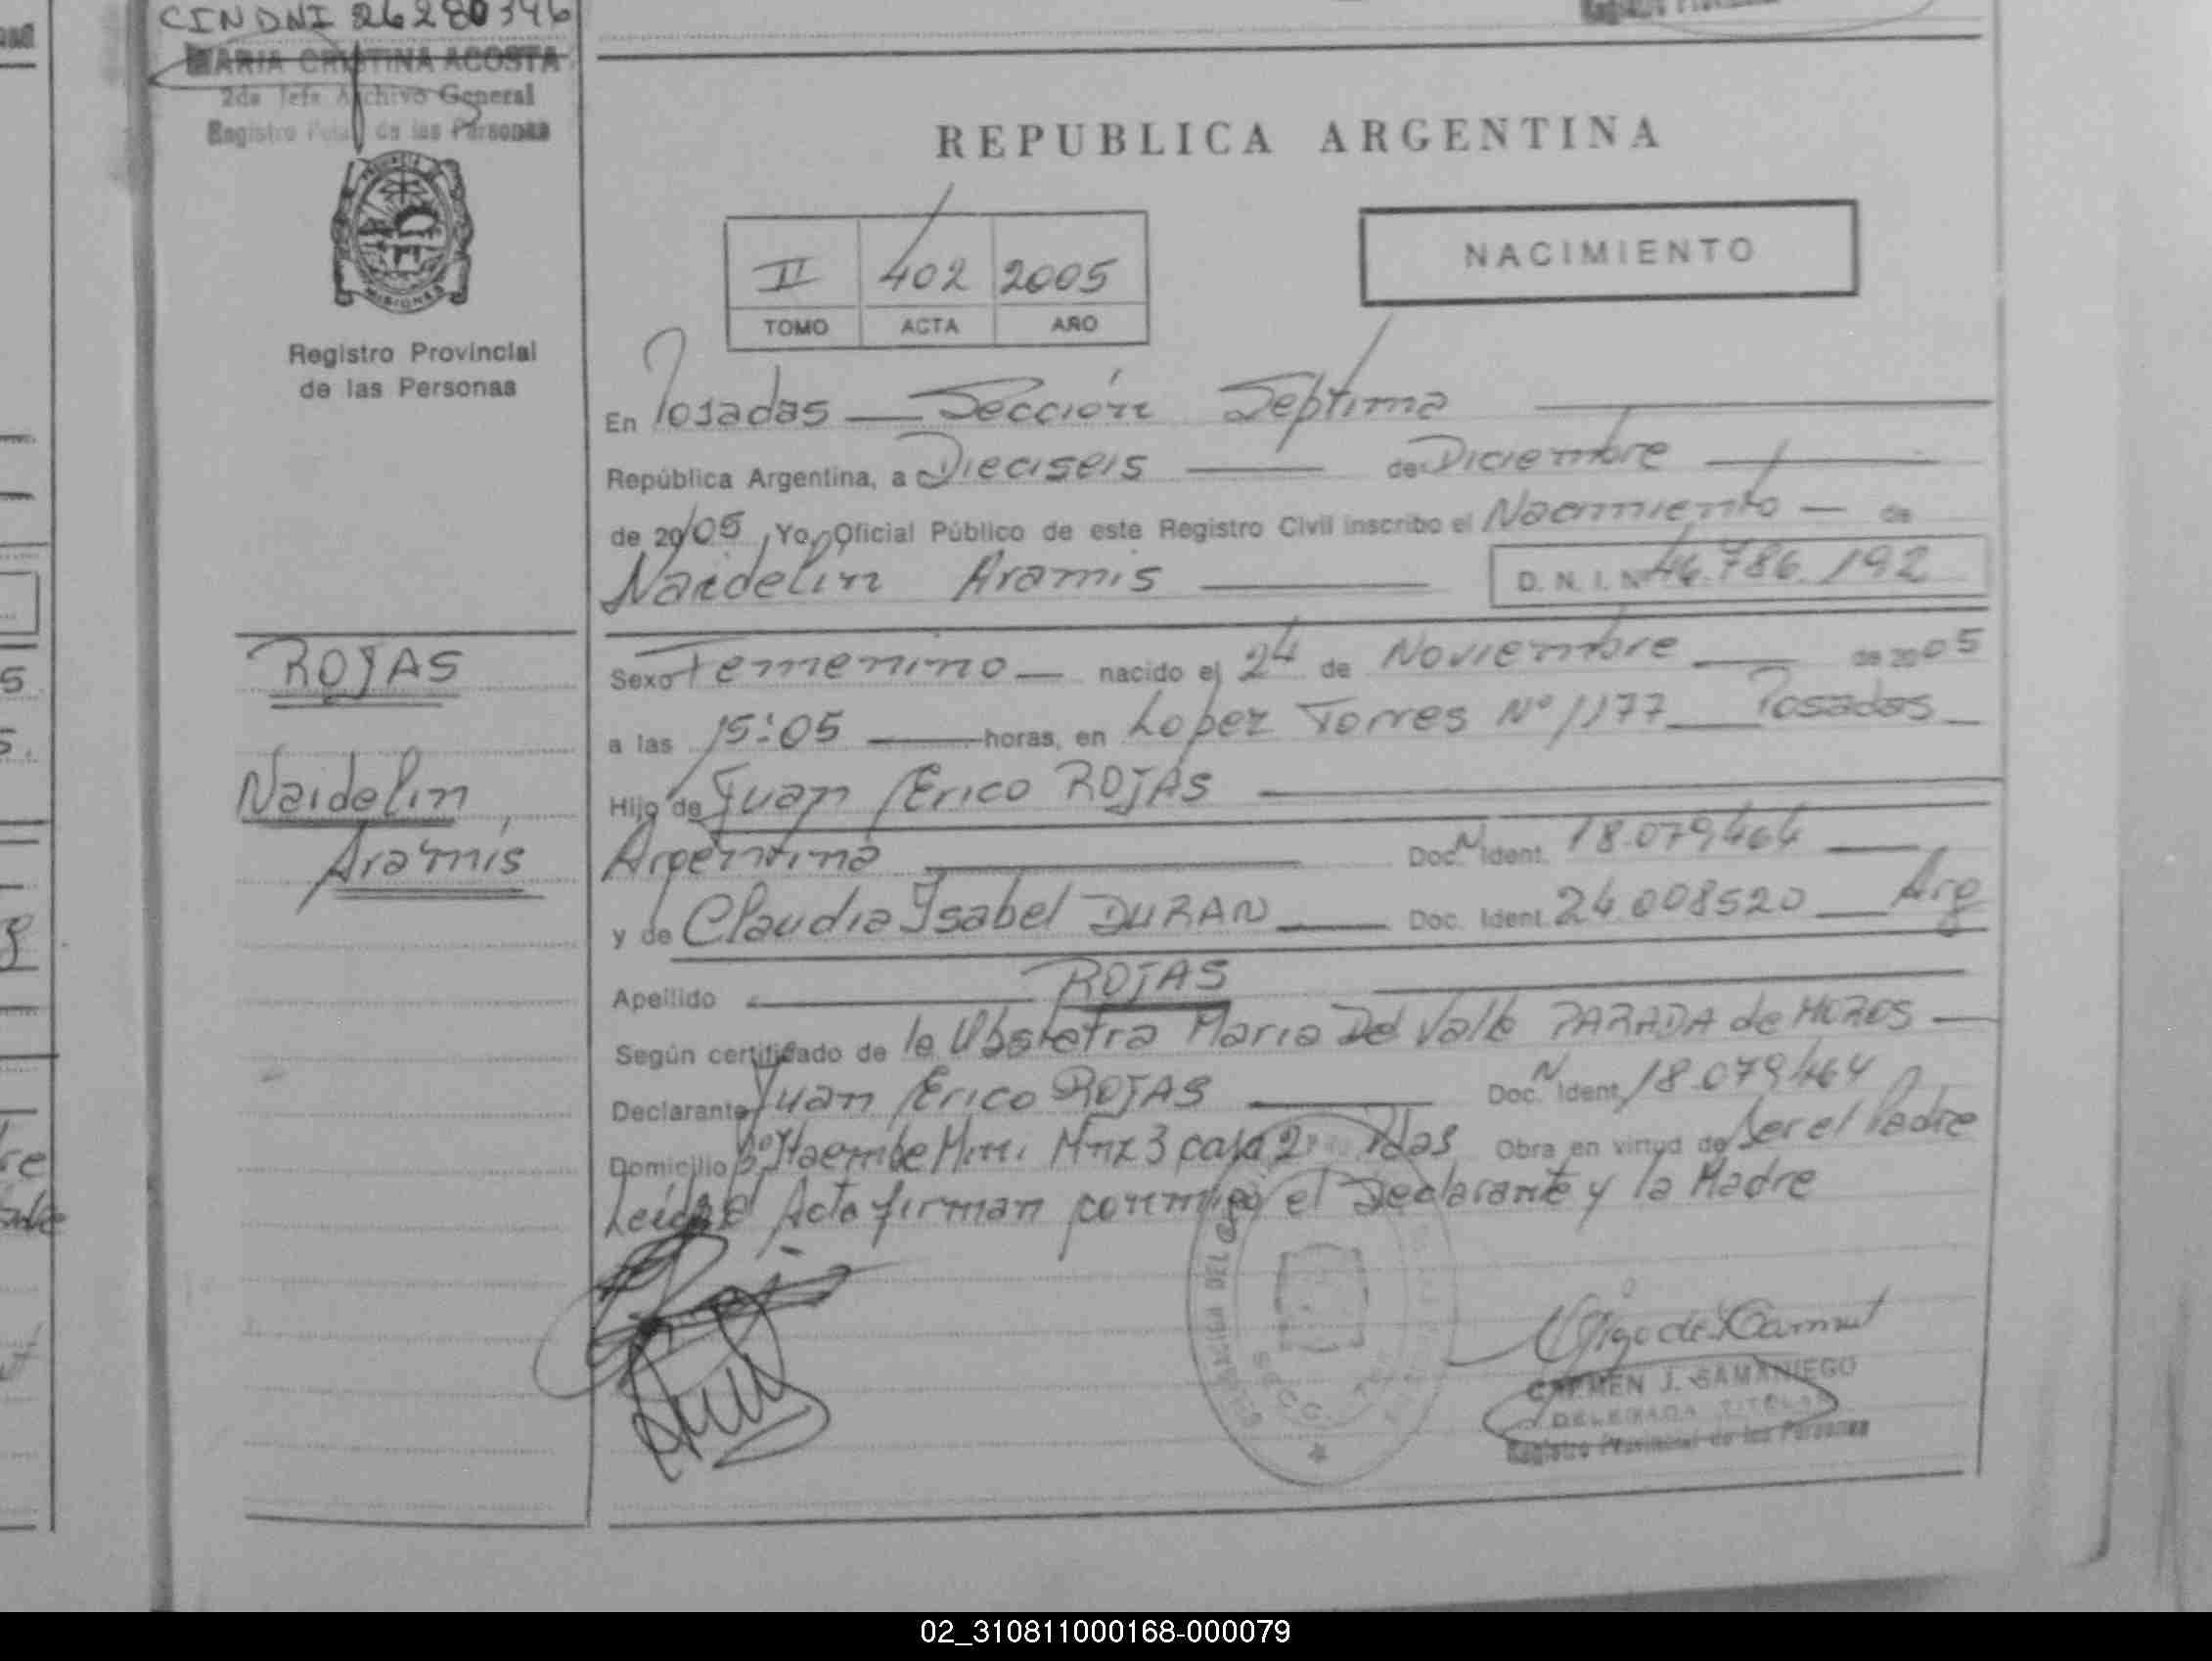 CINDNI 26280346
MARIA CRISTINA ACOSTA
2da Jefe Archivo General
Registro de las Personas
MISIONES
Registro Provincial
de las Personas
ROJAS
Naidelin
Aramis
REPUBLICA ARGENTINA
II 402 2005
TOMO ACTA AÑO
NACIMIENTO
En Posadas — Sección Septima
República Argentina, a Dieciseis de Diciembre
de 2005, Yo, Oficial Público de este Registro Civil inscribo el Nacimiento — de
Naidelin Aramis D.N.I. Nº 46.786.192
Sexo Femenino — nacido el 24 de Noviembre de 2005
a las 15:05 horas, en Lopez Torres Nº 1177 Posadas
Hijo de Juan Erico ROJAS
Argentina Doc. N Ident. 18.079464
y de Claudia Ysabel DURAN Doc. Ident. 24.008520 Arg
Apellido ROJAS
Según certificado de la Obstetra Maria Del Valle PARADA de MOROS
Declarante Juan Erico ROJAS Doc. N Ident. 18.079464
Domicilio Bº Itaembe Mini Mnz 3 casa 2 Pdas Obra en virtud de Ser el Padre
Leida el Acta firman conmigo el Declarante y la Madre
CARMEN J. SAMANIEGO
DELEGADA TITULAR
Registro Provincial de las Personas
02_310811000168-000079